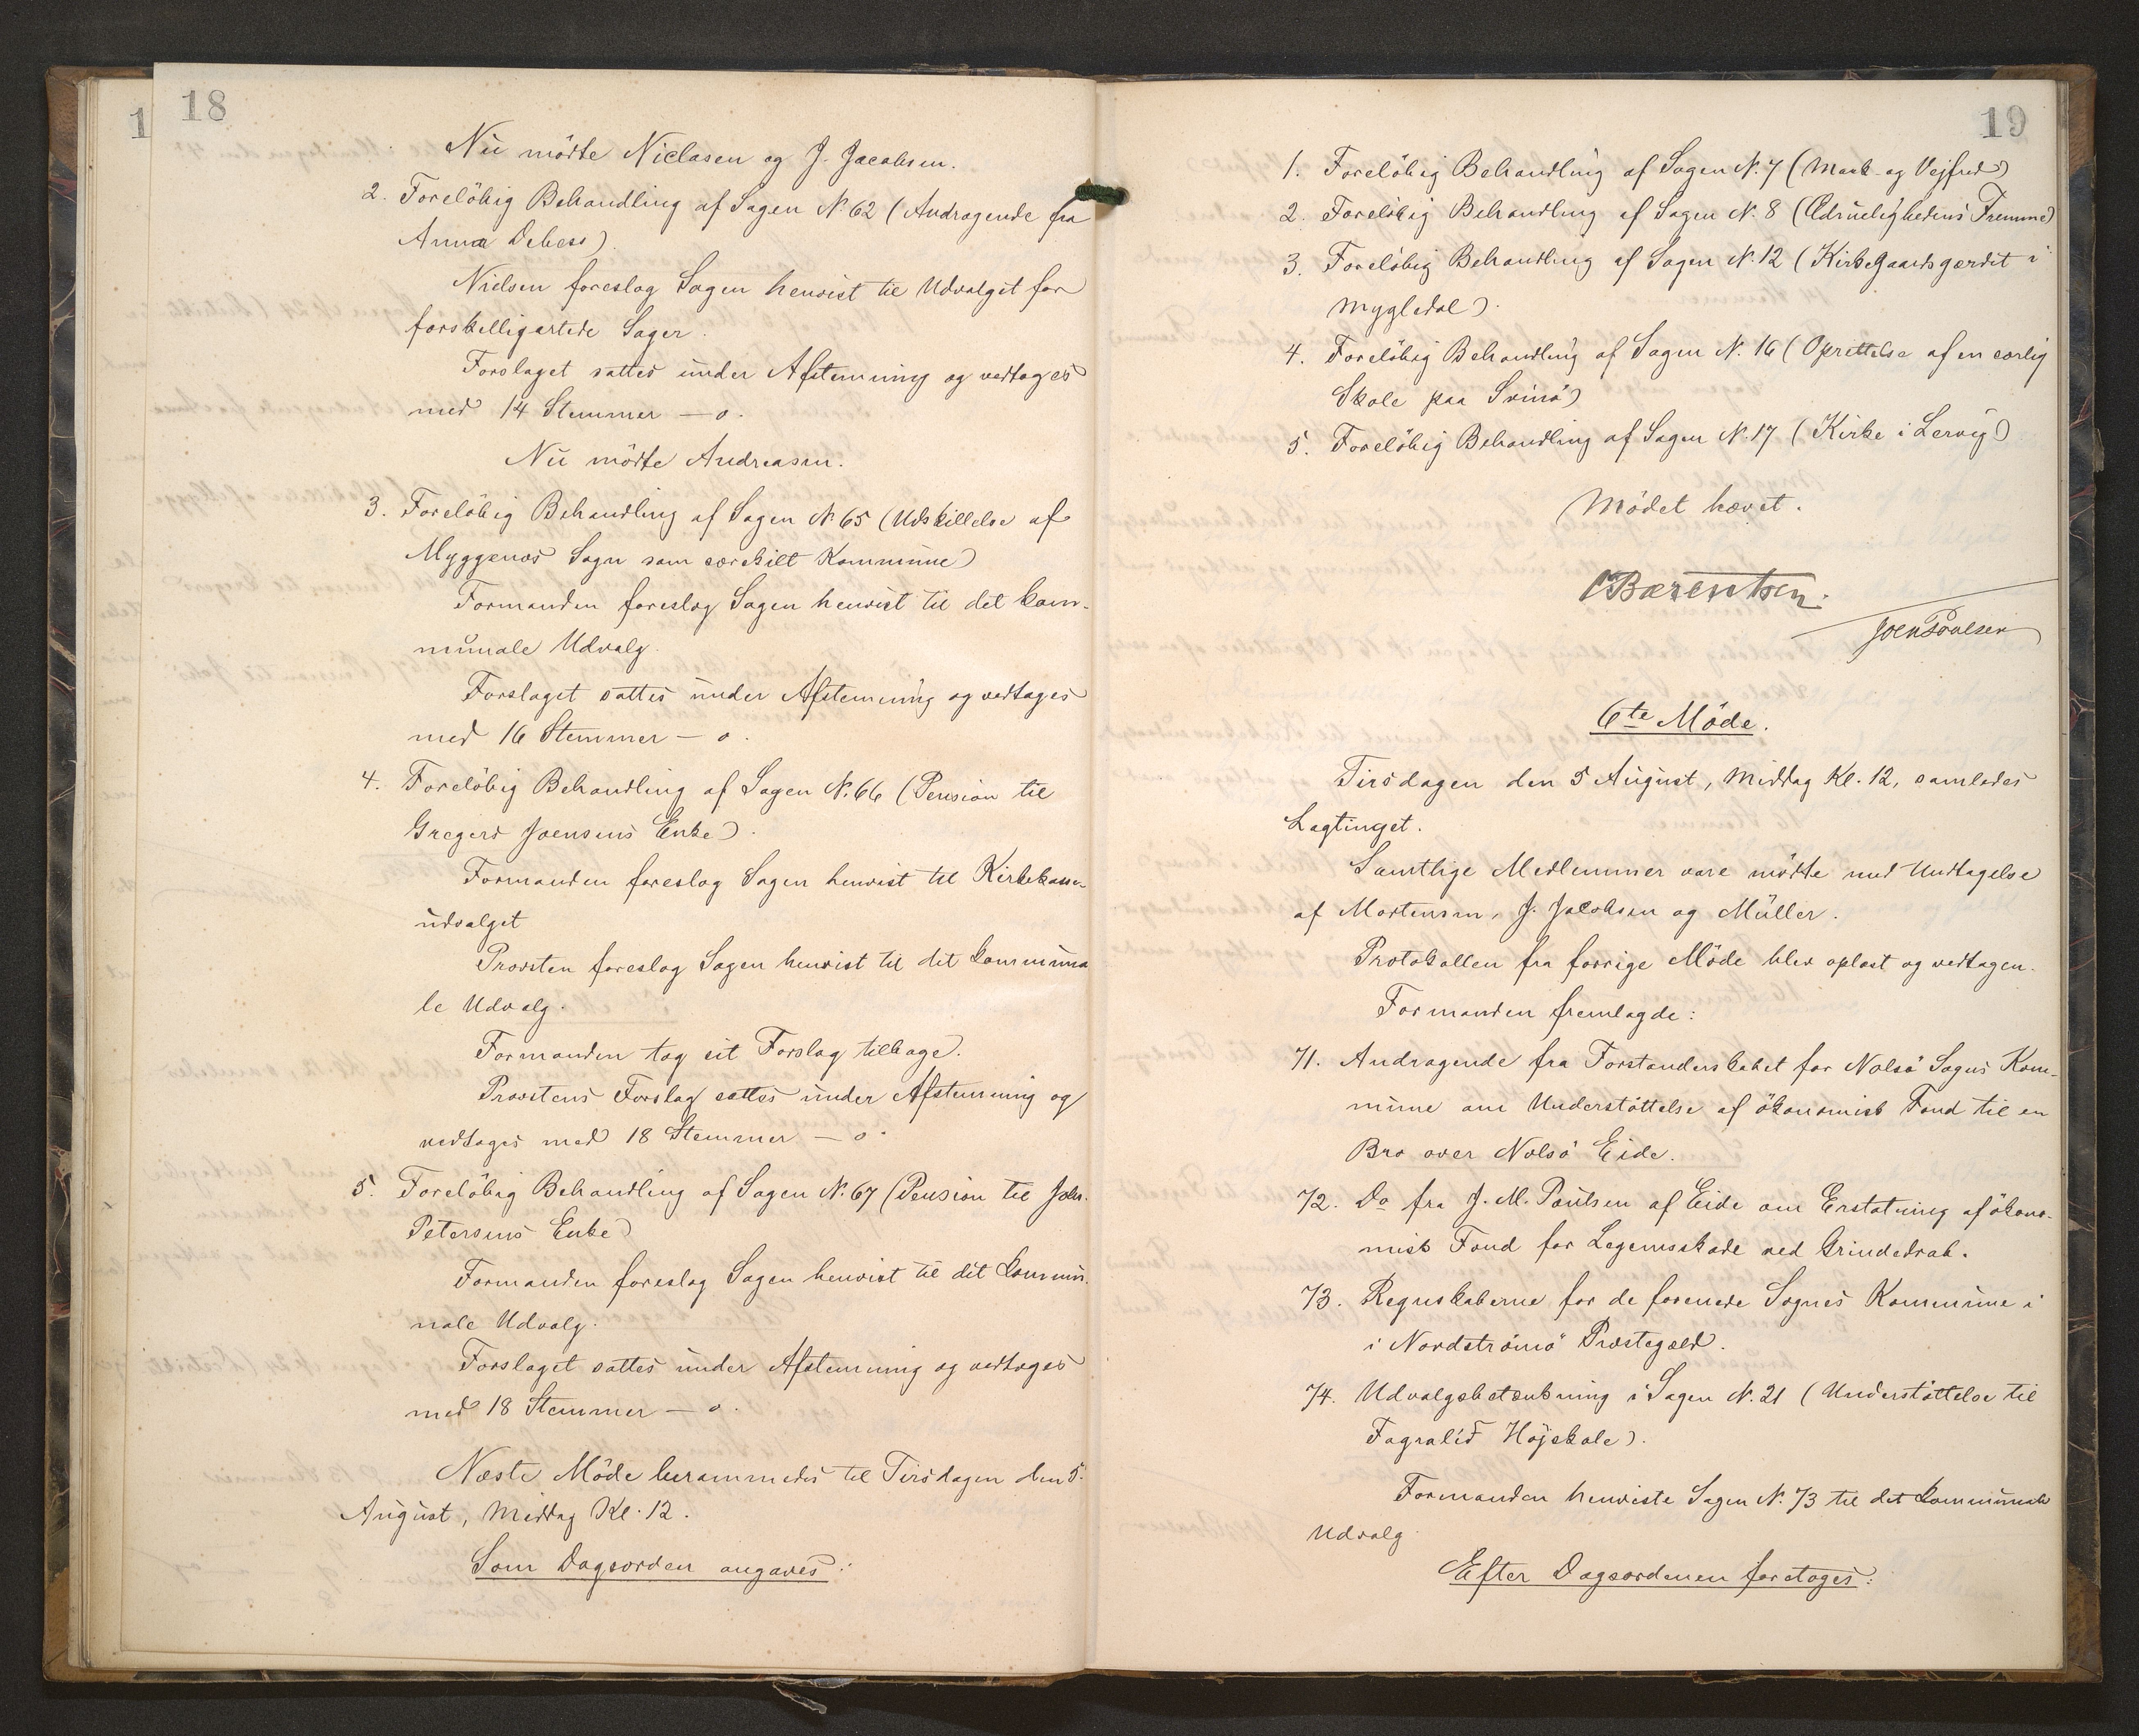 18
1
Nu mödte Niclasen og J. Jacobsen.
2. Forelöbig Behandling af Sagen N. 62 (Andragende fra
Anna Debess)
Nielsen foreslog Sagen henvist til Udvalget for
forskelligartede Sager.
Forslaget sattes under Afstemning og vedtoges
med 14 Stemmer – o.
Nu mödte Andreasen.
3. Forelöbig Behandling af Sagen N. 65 (Udskillelse af
Myggenæs Sogn som særskilt Kommune)
Formanden foreslog Sagen henvist til det kom-
munale Udvalg.
Forslaget sattes under Afstemning og vedtages
med 16 Stemmer – o.
4. Forelöbig Behandling af Sagen N. 66 (Pension til
Gregers Joensens Enke).
Formanden foreslog Sagen henvist til Kirkekasse-
udvalget
Provsten foreslog Sagen henvist til det kommuna
le Udvalg.
Formanden tog sit Forslag tilbage.
Provstens Forslag sattes under Afstemning og
vedtoges med 18 Stemmer – o.
5. Forelöbig Behandling af Sagen N. 67 (Pension til Johs.
Petersens Enke)
Formanden foreslog Sagen henvist til det kommu-
nale Udvalg.
Forslaget sattes under Afstemning og vedtoges
med 18 Stemmer – o.
Næste Möde berammedes til Tirsdagen den 5.
August, Middag Kl. 12.
Som Dagsorden angaves:
19
1. Forelöbig Behandling af Sagen N. 7 (Mark- og Vejfred)
2. Forelöbig Behandling af Sagen N. 8 (Ædruelighedens Fremme)
3. Forelöbig Behandling af Sagen N. 12 (Kirkegaardsgærdet i
Mygledal).
4. Forelöbig Behandling af Sagen N. 16 (Oprettelse af en særlig
Skole paa Svinö)
5. Forelöbig Behandling af Sagen N. 17 (Kirke i Lervig)
Mödet hævet.
CBærentsen.
Joen Poulsen
6te Möde.
Tirsdagen den 5 August, Middag Kl. 12, samledes
Lagtinget.
Samtlige Medlemmer vare mödte med Undtagelse
af Mortensen, J. Jacobsen og Müller.
Protokollen fra forrige Möde blev oplæst og vedtagen.
Formanden fremlagde:
71. Andragende fra Forstanderskabet for Nolsö Sogns Kom-
mune om Understöttelse af ökonomisk Fond til en
Bro over Nolsö Eide.
72. Do fra J. M. Poulsen af Eide om Erstatning af ökono-
misk Fond for Legemsskade ved Grindedrab.
73. Regnskaberne for de forenede Sognes Kommune i
i Nordströmö Præstegæld.
74. Udvalgsbetænkning i Sagen N. 21 (Understöttelse til
Fagralid Höjskole).
Formanden henviste Sagen N. 73 til det kommunale
Udvalg.
Efter Dagsordenen foretoges: